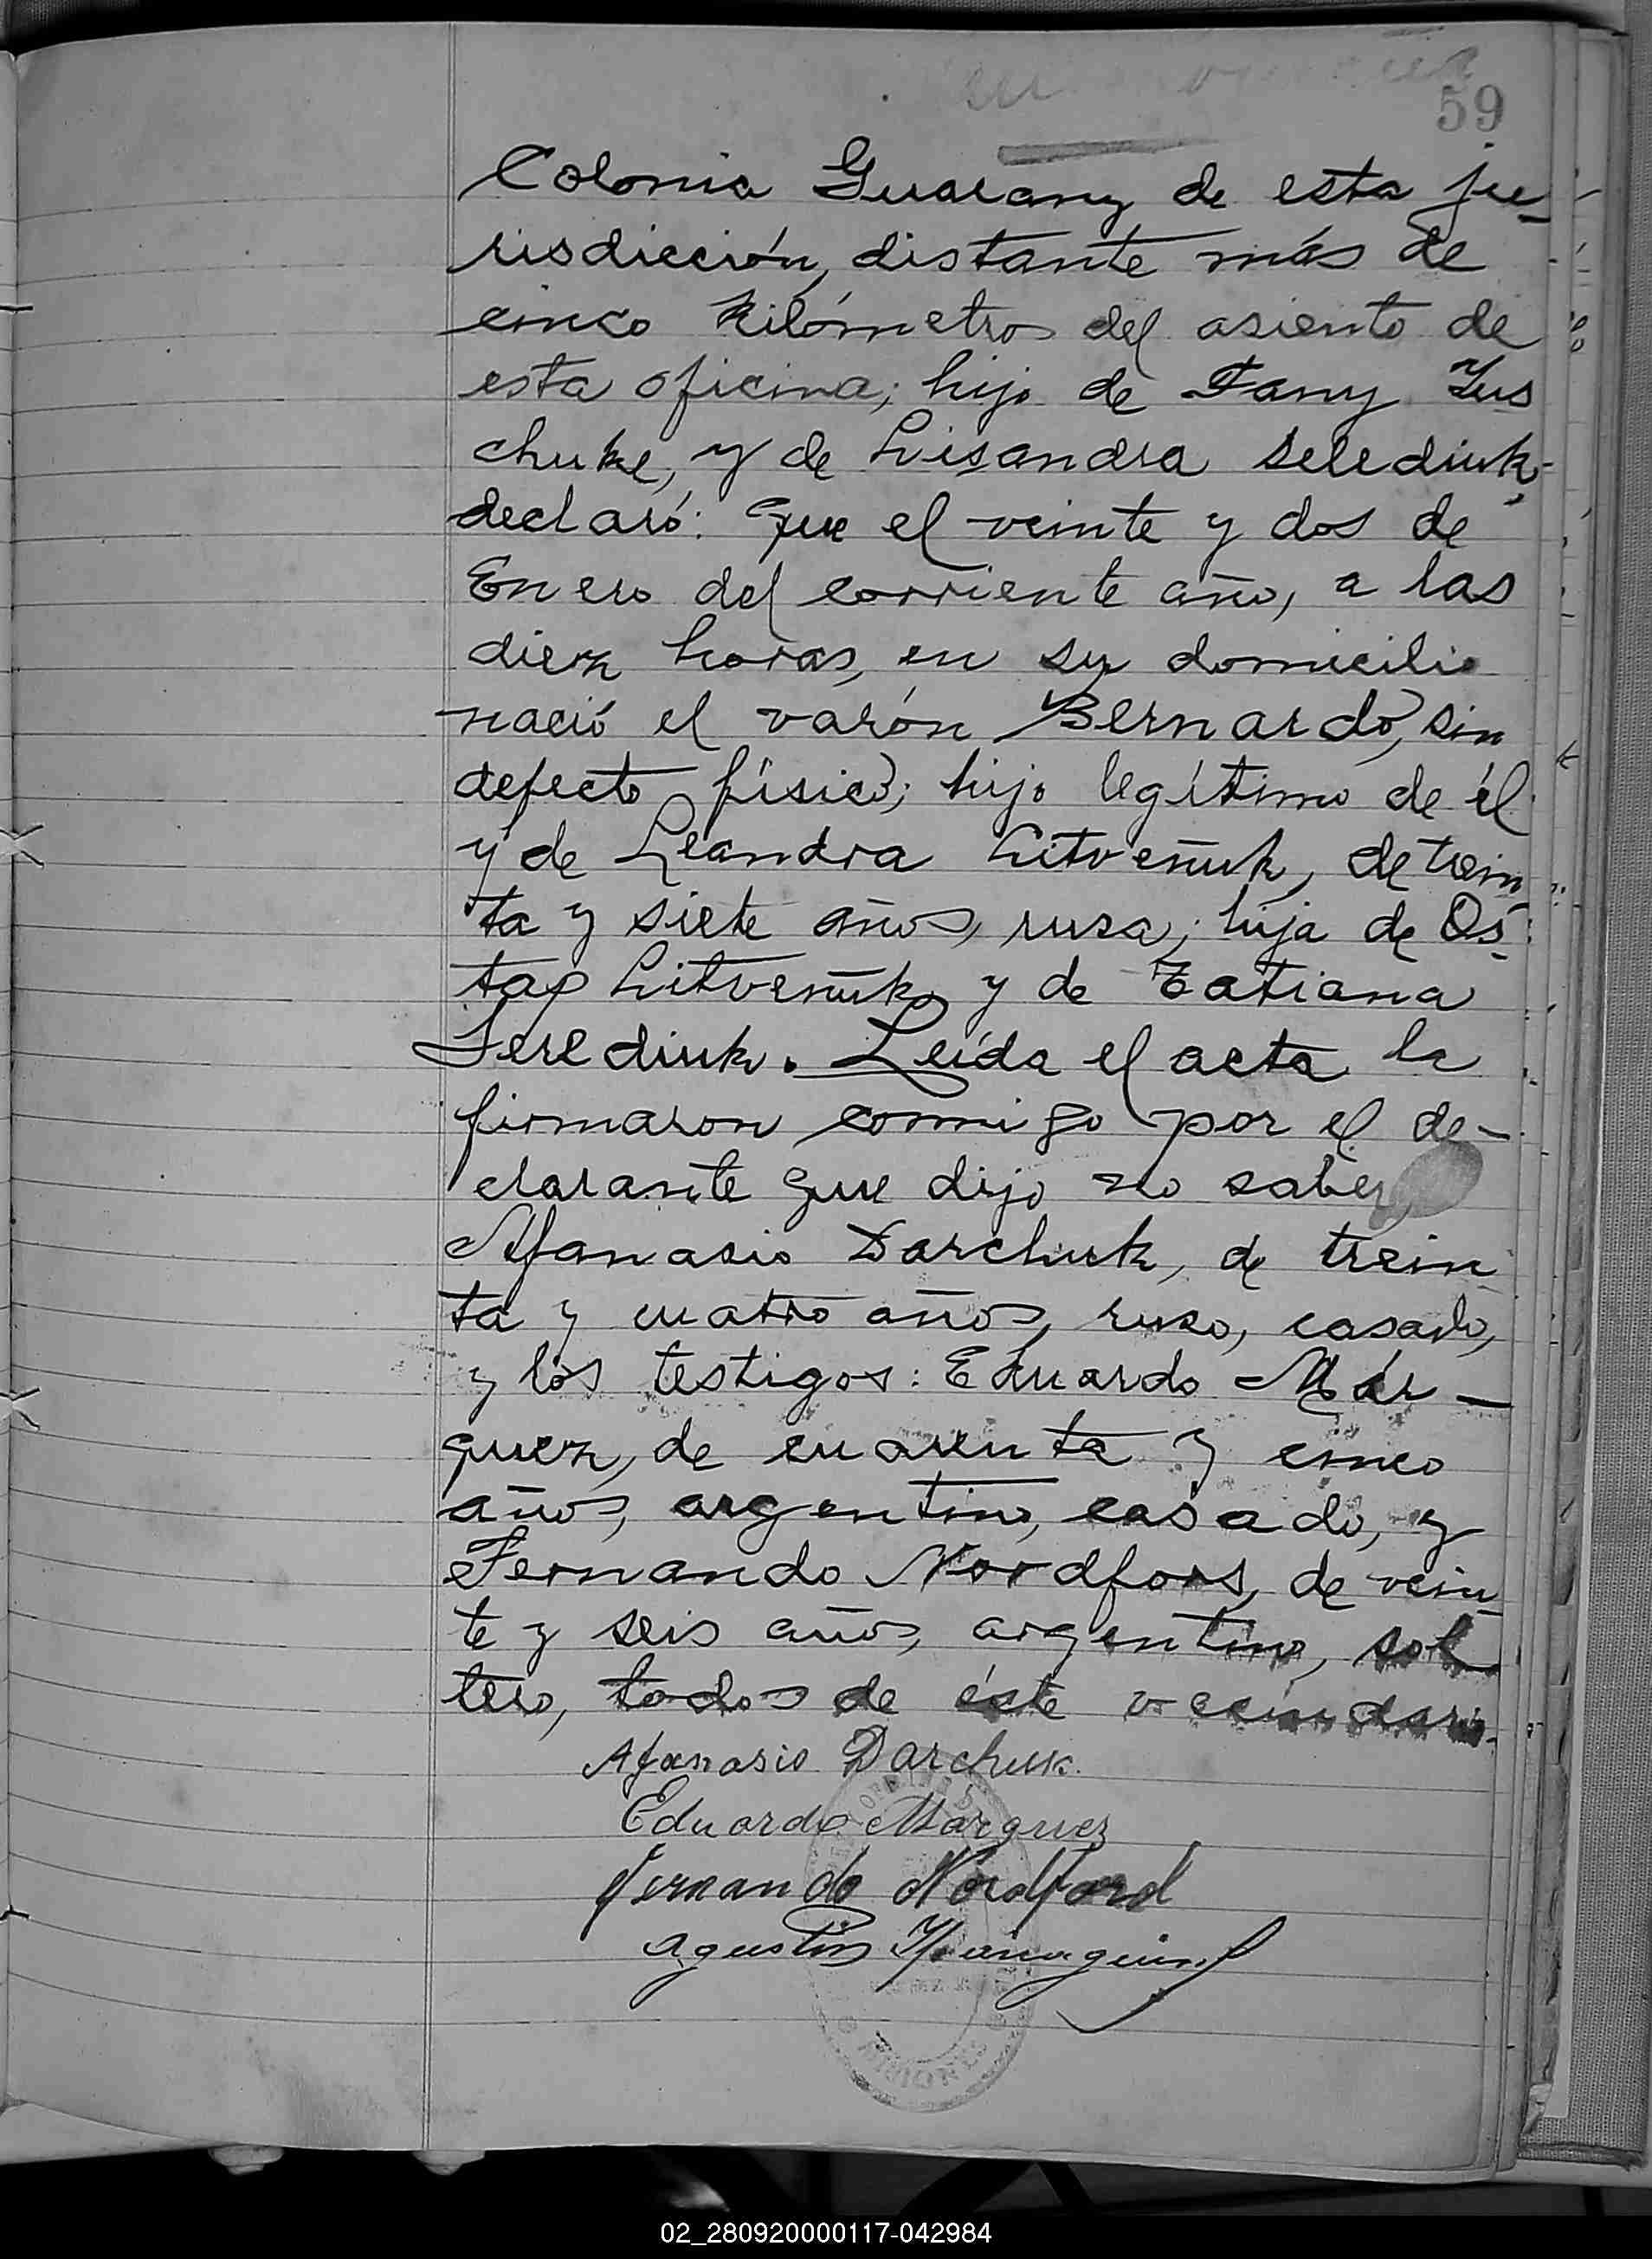 59
Colonia Guarany de esta ju-
risdicción, distante más de
cinco kilómetros del asiento de
esta oficina; hijo de Dany Yus
chuke, y de Lisandra Selediuk,
declaró: Que el veinte y dos de
Enero del corriente año, a las
diez horas, en su domicilio
nació el varón Bernardo, sin
defecto físico; hijo legítimo de él
y de Leandra Litveñuk, de trein
ta y siete años, rusa; hija de Os-
tap Litveñuk, y de Tatiana
Serediuk. Leída el acta la
firmaron conmigo por el de-
clarante que dijo no saber
Afanasio Darchuk, de trein
ta y cuatro años, ruso, casado,
y los testigos: Eduardo Már-
quez, de cuarenta y cinco
años, argentino, casado, y
Fernando Nordfors, de vein-
te y seis años, argentino, sol
tero, todos de éste vecindario.
Afanasio Darchuk.
Eduardo Marquez
Fernando Nordford
Agustín
MISIONES
02_280920000117-042984